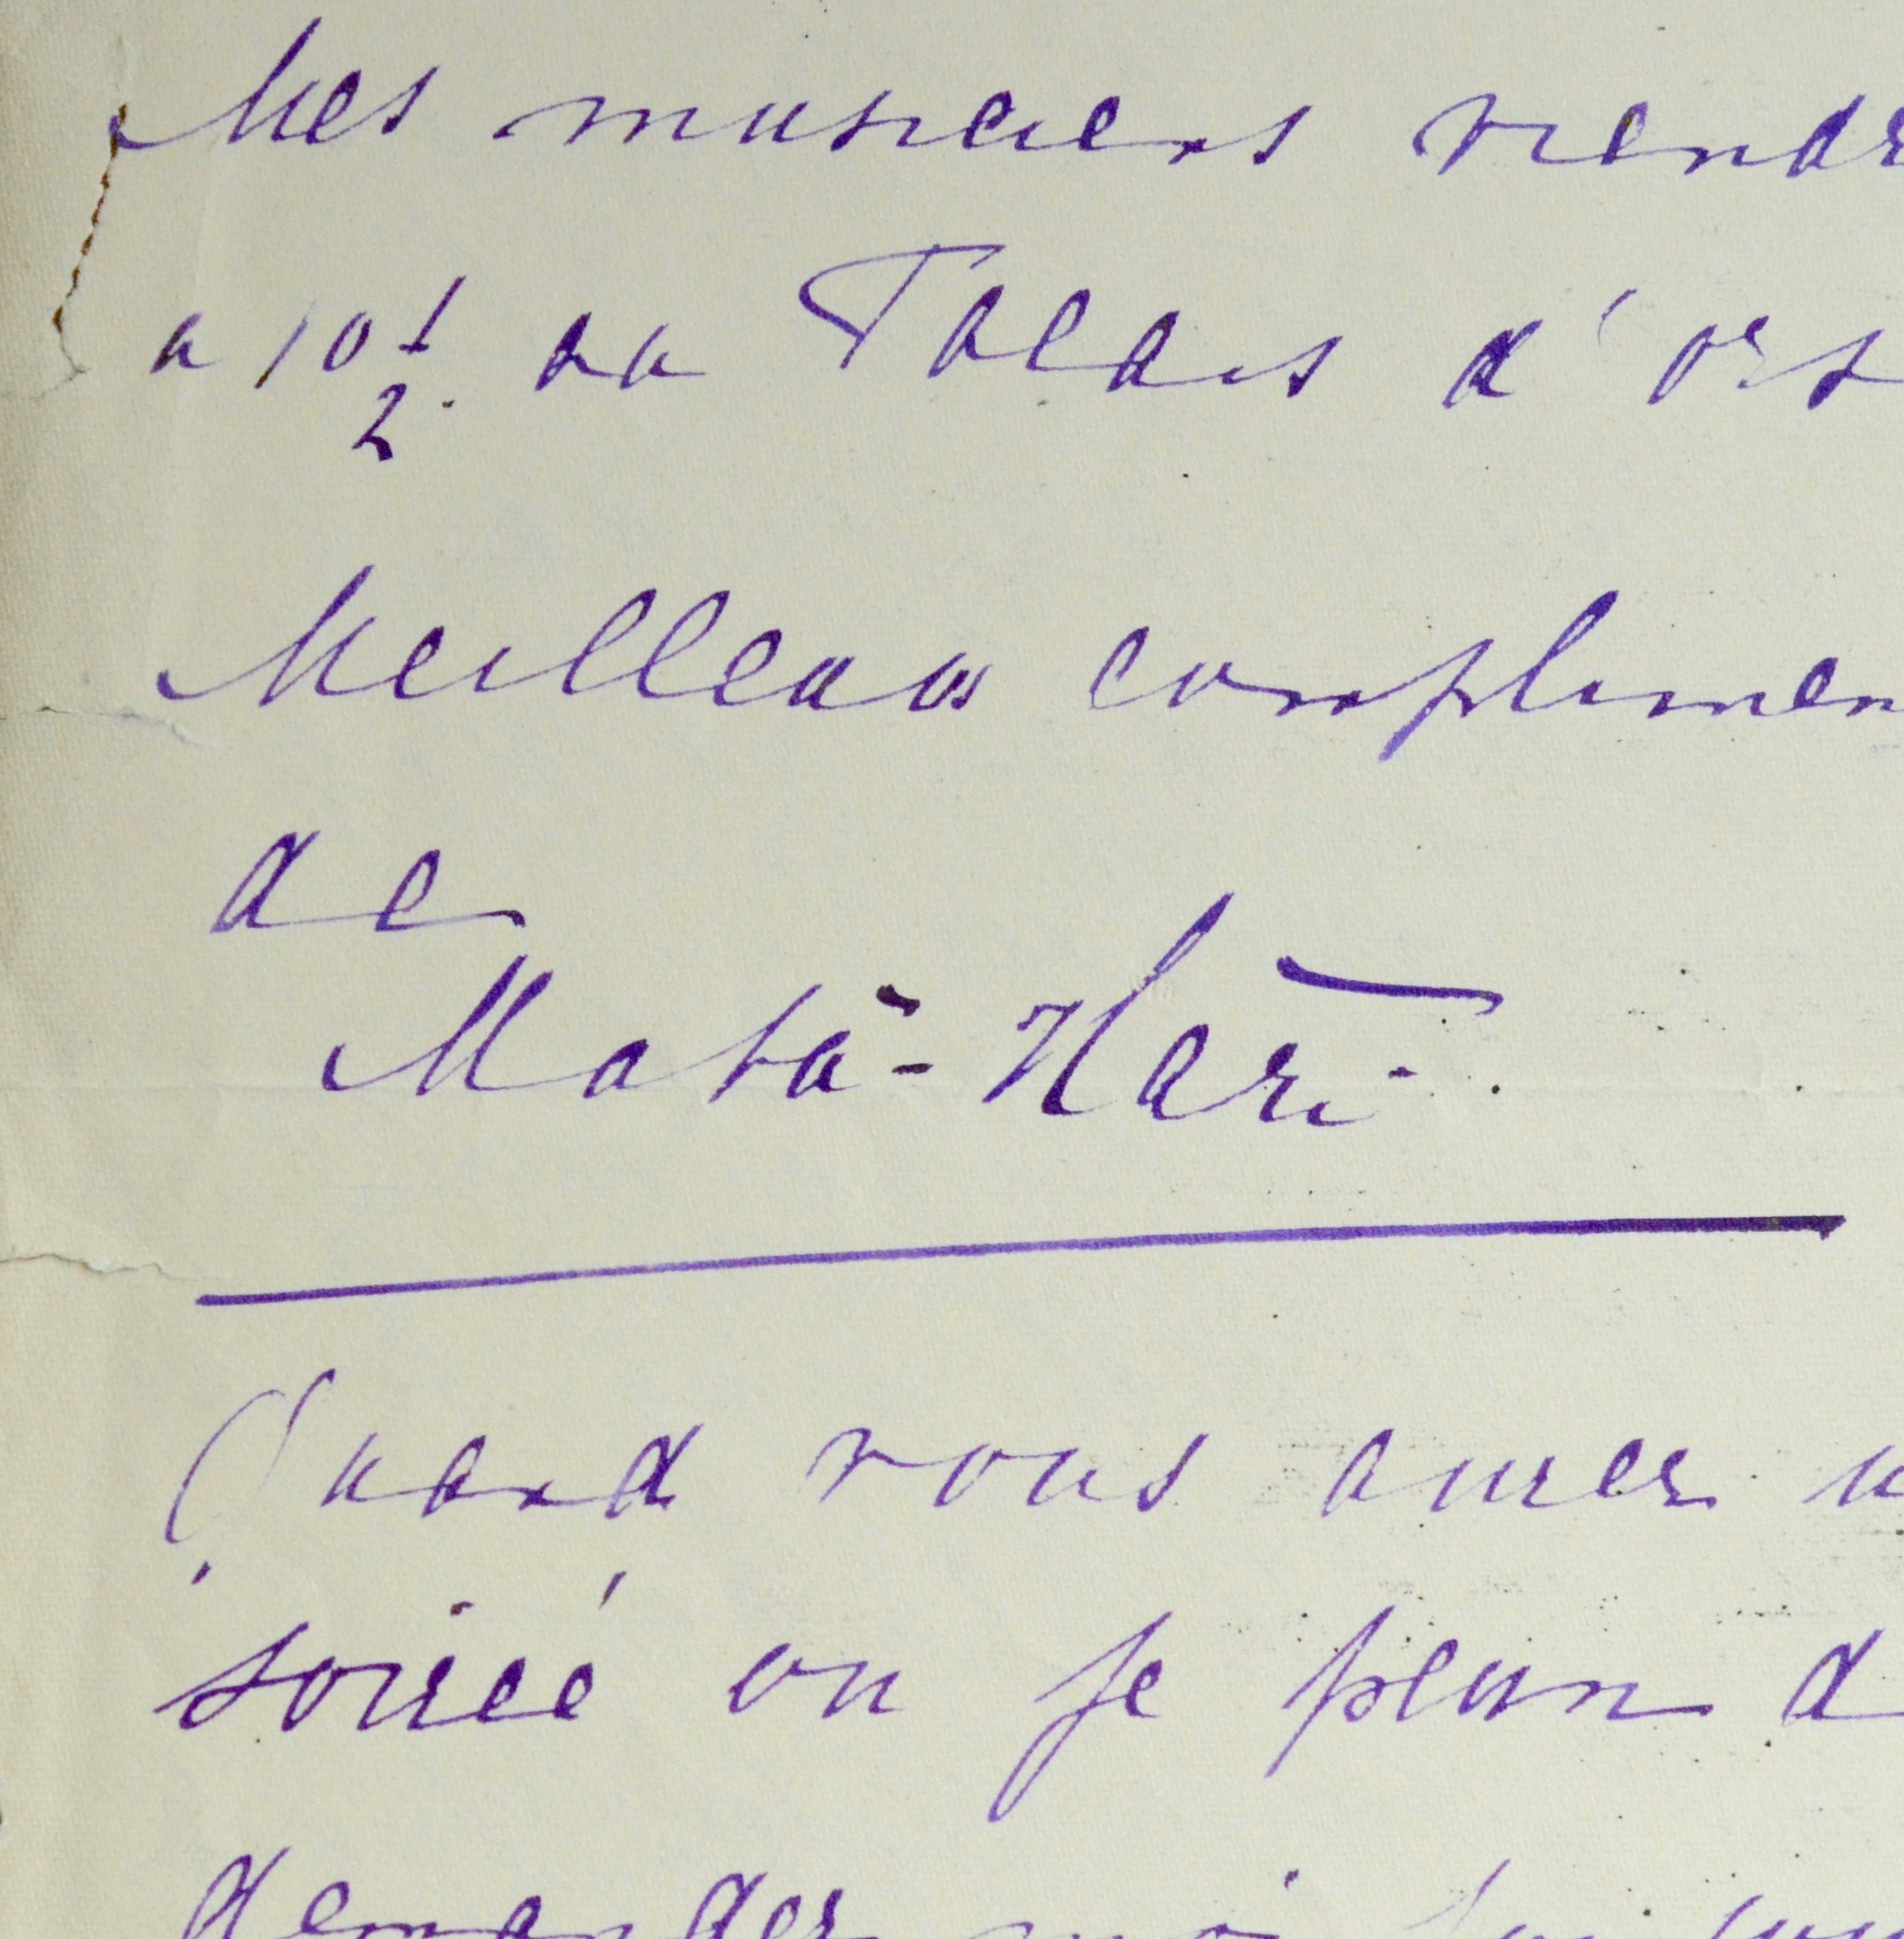 Mes musiciens viendr
a 10 1/2. au Palais d'ors
Meilleurs complimen
de
Mata-Hari.
Quand vous aurez u
soireé ou je peux d
demander moi